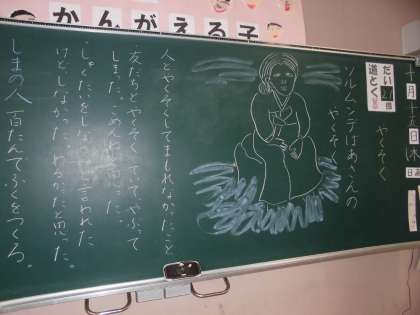 かんがえる子
だい
道とく
月
日
休
やくそく
ソルムンデばあさんの
やくそく
人とやくそくしてまもれなかったこと
・友だちとやくそくしてて、やぶって
しまった。ごめんと言った。
けどしなかった。わるかったと思った。
しまの人 百たんでふくをつくろ。